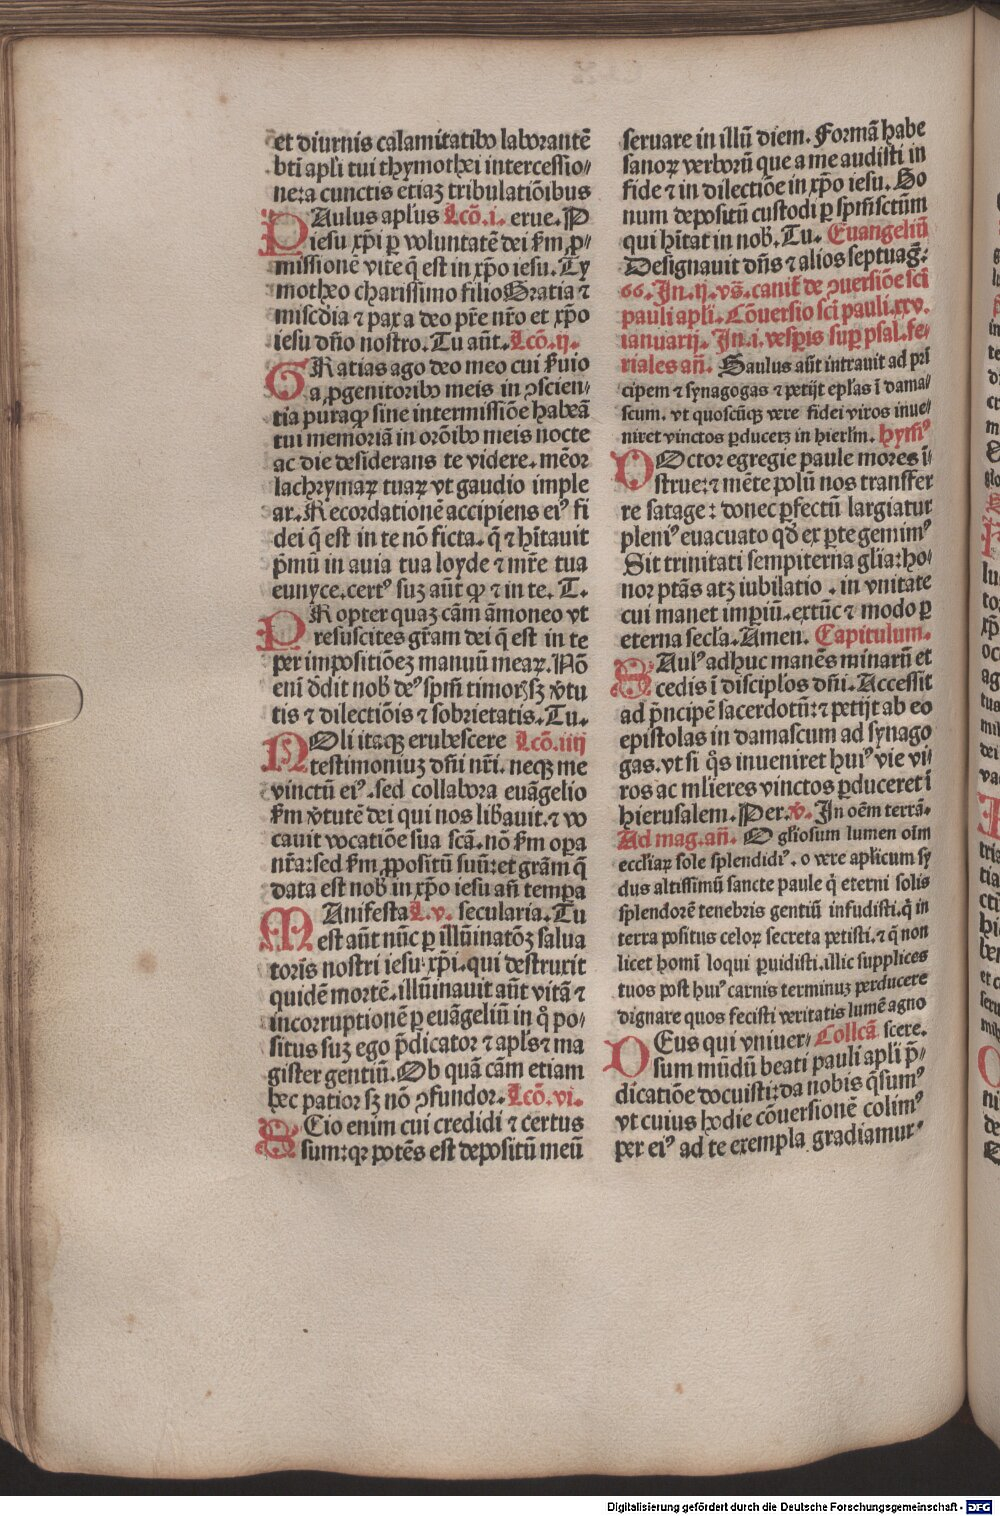 et diurnis calamitatibꝰ laborantē
bti apli tui thymothei intercessio/
ne:a cunctis etiaꝫ tribulatiōibus
PAulus aplus Lcō.i. erue. P
iesu xp̄i ꝑ voluntatē dei k̄m ꝓ/
missionē vite q̄ est in xp̄o iesu. Ty
motheo charissimo filio Gratia ⁊
miscdia ⁊ pax a deo pr̄e nr̄o et xp̄o
iesu dn̄o nostro. Tu aūt. Lcō.ij.
GRatias ago deo meo cui ẜuio
a ꝓgenitoribꝰ meis in ꝯscien/
tia pura:ꝙ sine intermissiōe habeā
tui memoriā in orōibꝰ meis nocte
ac die desiderans te videre. mēor
lachrymaꝝ tuaꝝ vt gaudio imple
ar. Recordationē accipiens eiꝰ fi
dei q̄ est in te nō ficta. q̄ ⁊ hītauit
pͥmū in auia tua loyde ⁊ mr̄e tua
eunyce. certꝰ suꝫ aūt ꝙ ⁊ in te. T.
PRopter quaꝫ cām āmoneo vt
resuscites gr̄am dei q̄ est in te
per impositiōeꝫ manuū meaꝝ. Nō
eni dedit nob̄ deꝰ spm̄ timorꝭ:sꝫ v̓tu
tis ⁊ dilectiōis ⁊ sobrietatis. Tu.
NOli itaqꝫ erubescere Lcō.iiij
testimoniuꝫ dn̄i nr̄i. neqꝫ me
vinctū eiꝰ. sed collabora euāgelio
k̄m v̓tutē dei qui nos lib̓auit. ⁊ vo
cauit vocatiōe sua scā. nō k̄m oꝑa
nr̄a:sed k̄m ꝓpositū suū:et grām q̄
data est nob̄ in xp̄o iesu an̄ tempa
MAnifesta L.v. secularia. Tu
est aūt nūc ꝑ illūinatōꝫ salua
toris nostri iesu xp̄i. qui destruxit
quidē mortē. illūinauit aūt vitā ⁊
incorruptionē ꝑ euāgeliū in q̊ po/
situs suꝫ ego p̄dicator ⁊ apls ⁊ ma
gister gentiū. Ob quā cām etiam
hec patior sꝫ nō ꝯfundor. Lcō.vi.
SCio enim cui credidi ⁊ certus
sum:qꝛ potēs est depositū meū
seruare in illū diem. Formā habe
sanoꝝ verborū que a me audisti in
fide ⁊ in dilectiōe in xp̄o iesu. Bo
num depositū custodi ꝑ spm̄sctūm
qui hītat in nob̄. Tu. Euangeliū
Designauit dn̄s ⁊ alios septuaḡ.
66. In.ij.vs̄. canit̄ de ꝯuersiōe sci
pauli apli. Cōuersio sci pauli.xxv.
ianuarij. In.i.vesꝑis suꝑ psal. fe/
riales an̄. Saulus aūt intrauit ad prī
cipem ⁊ synagogas ⁊ petijt eplas ī dama/
scum. vt quoscūqꝫ vere fidei viros inue/
niret vinctos ꝑduceret in hierlm̄. hym̄ꝰ
DOctor egregie paule mores ī/
strue:⁊ mēte polū nos transfer
re satage: donec ꝑfectū largiatur
pleniꝰ euacuato qd̓ ex ꝑte gemimꝰ
Sit trinitati sempiterna glia:ho/
nor ptās atqꝫ iubilatio. in vnitate
cui manet imꝑiū. extūc ⁊ modo ꝑ
eterna secla. Amen. Capitulum.
SAulꝰ adhuc manēs minarū et
cedis ī discipłos dn̄i. Accessit
ad pͥncipē sacerdotū:⁊ petijt ab eo
epistolas in damascum ad synago
gas. vt si q̊s inueniret huiꝰ vie vi/
ros ac mlieres vinctos ꝑduceret ī
hierusalem. Per. v̓. In oēm terrā.
Ad mag. an̄. O gliosum lumen oīm
eccliaꝝ sole splendidiꝰ. o vere aplicum sy
dus altissimū sancte paule q̓ eterni solis
splendorē tenebris gentiū infudisti. q̓ in
terra positus celoꝝ secreta petisti. ⁊ q̄ non
licet homī loqui ꝑuidisti. illic supplices
tuos post huiꝰ carnis terminuꝫ perducere
dignare quos fecisti veritatis lumē agno
DEus qui vniuer/ Collcā scere.
sum mūdū beati pauli apli p̄/
dicatiōe docuisti:da nobis q̄sumꝰ
vt cuius hodie cōuersionē colimꝰ
per eiꝰ ad te exempla gradiamur.
Digitalisierung gefördert durch die Deutsche Forschungsgemeinschaft - DFG